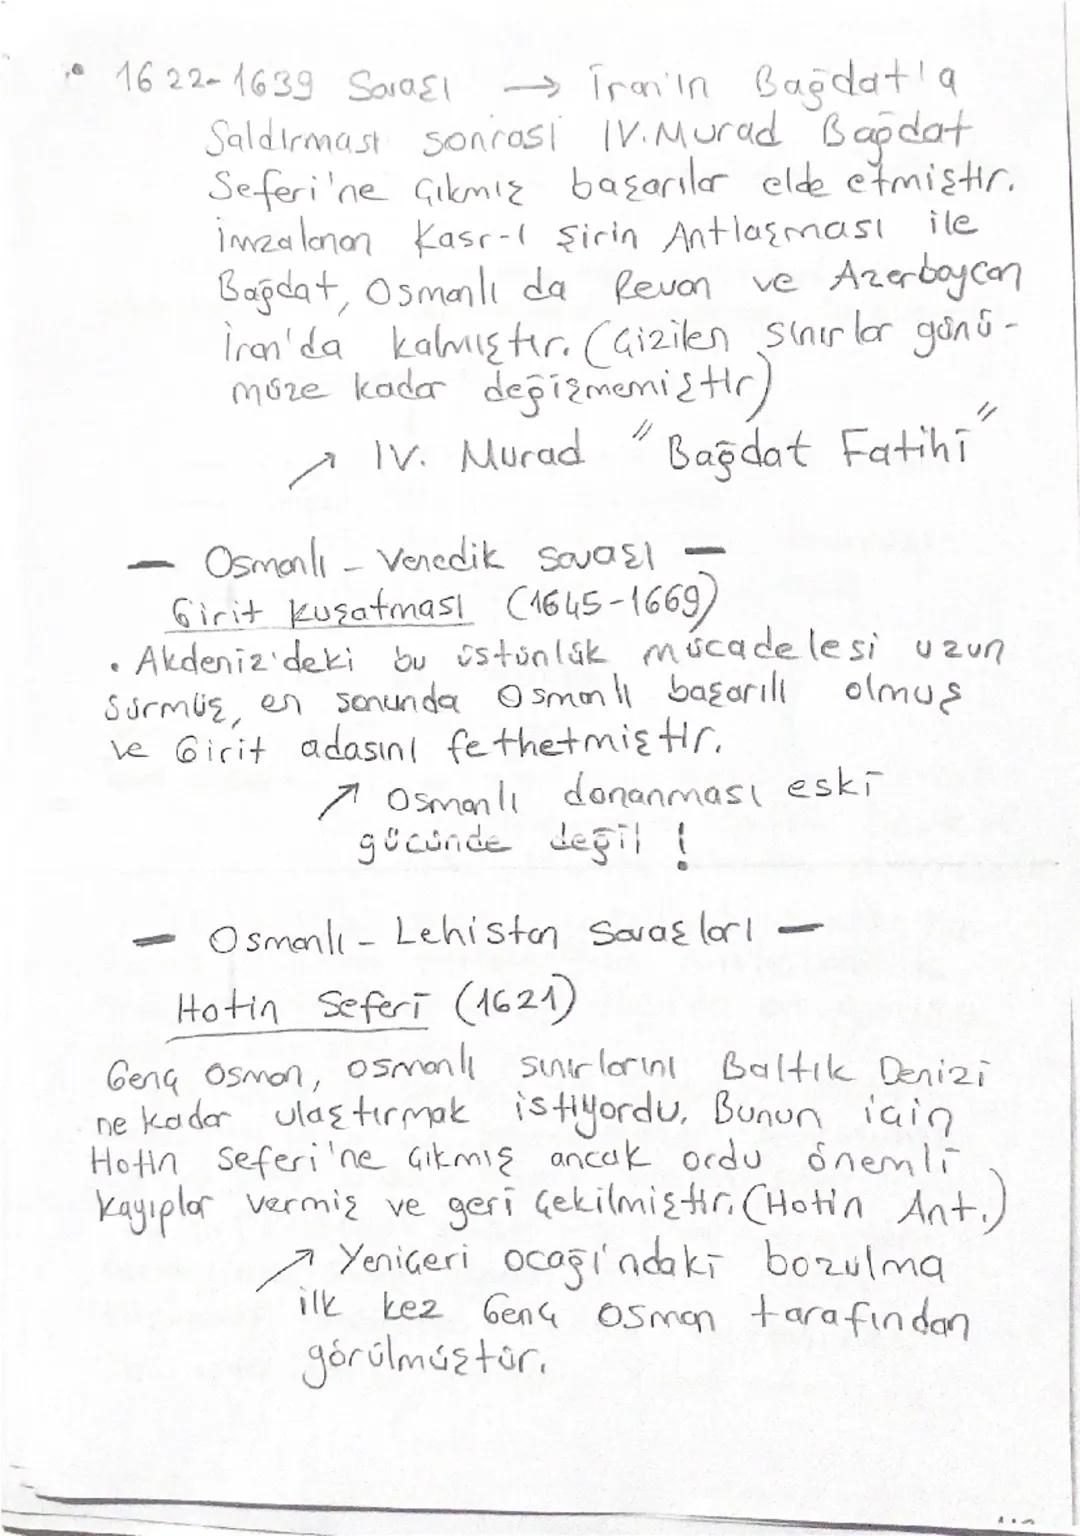 • 1622-1639 Savaşı → İran'ın Bağdat'a
Saldırması sonrası IV. Murad Bağdat
Seferi'ne çıkmış başarılar elde etmiştir.
İmzalanan Kasr-ı Şirin Antlaşması ile
Bağdat, Osmanlı da Revan ve Azerbaycan
İran'da kalmıştır. (Çizilen sınırlar günü-
müze kadar değişmemiştir)
↗ IV. Murad "Bağdat Fatihi"
— Osmanlı - Venedik Savaşı —
Girit Kuşatması (1645-1669)
• Akdeniz'deki bu üstünlük mücadelesi uzun
sürmüş, en sonunda Osmanlı başarılı olmuş
ve Girit adasını fethetmiştir.
↗ Osmanlı donanması eski
gücünde değil !
— Osmanlı - Lehistan Savaşları —
Hotin Seferi (1621)
Genç Osman, Osmanlı sınırlarını Baltık Denizi
ne kadar ulaştırmak istiyordu. Bunun için
Hotin Seferi'ne çıkmış ancak ordu önemli
kayıplar vermiş ve geri çekilmiştir. (Hotin Ant.)
↗ Yeniçeri ocağı'ndaki bozulma
ilk kez Genç Osman tarafından
görülmüştür.